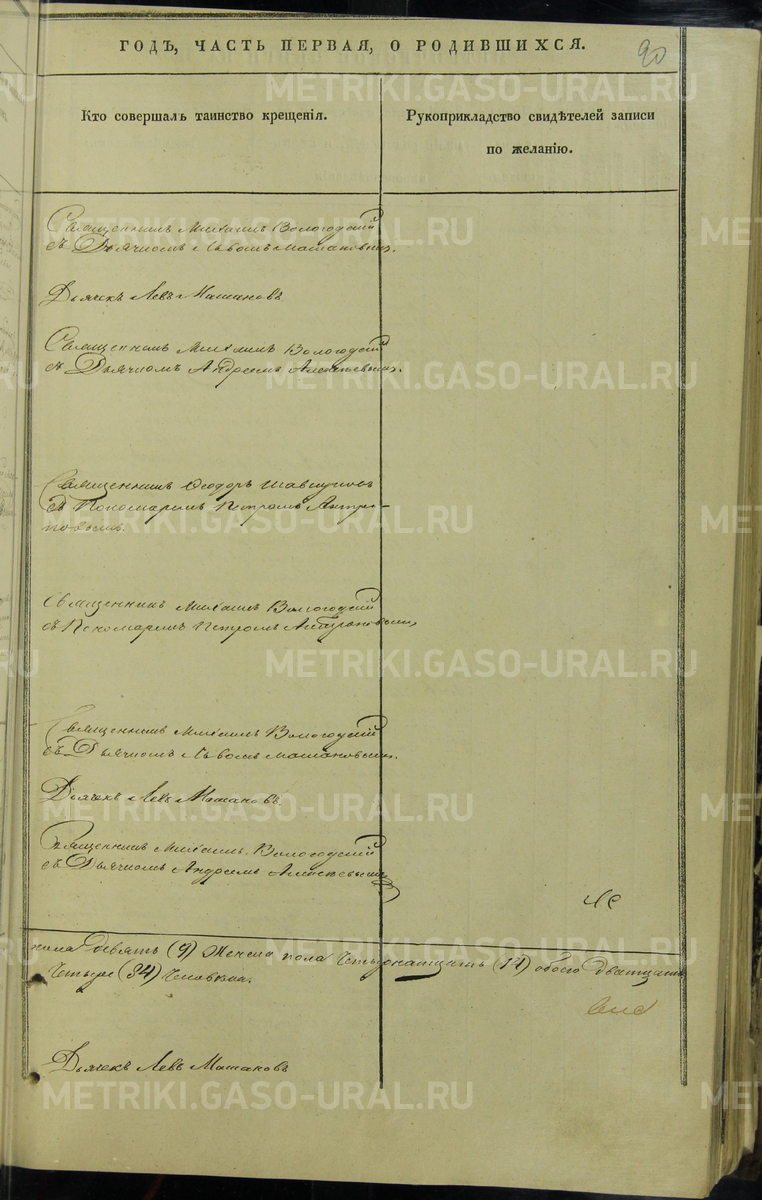 ГОДЪ, ЧАСТЬ ПЕРВАЯ, О РОДИВШИХСЯ.
90
Кто совершалъ таинство крещенія.
Рукоприкладство свидѣтелей записи
по желанію.
Священникъ Михаилъ Вологодскій
съ Дьячкомъ Львомъ Машановымъ.
Дьячекъ Левъ Машановъ
Священникъ Михаилъ Вологодскій
съ Дьячкомъ Андреемъ Алексѣевымъ.
Священникъ Ѳеодоръ
съ Пономаремъ Петромъ Антро-
повымъ.
Священникъ Михаилъ Вологодскій
съ Пономаремъ Петромъ Антроповымъ
Священникъ Михаилъ Вологодскій
съ Дьячкомъ Львомъ Машановымъ.
Дьячекъ Левъ Машановъ
Священникъ Михаилъ Вологодскій
съ Дьячкомъ Андреемъ Алексѣевымъ
пола девять (9) Женска пола (14) обоего дватцать
Четыре (24) Человека.
Дьячекъ Левъ Машановъ
METRIKI.GASO-URAL.RU